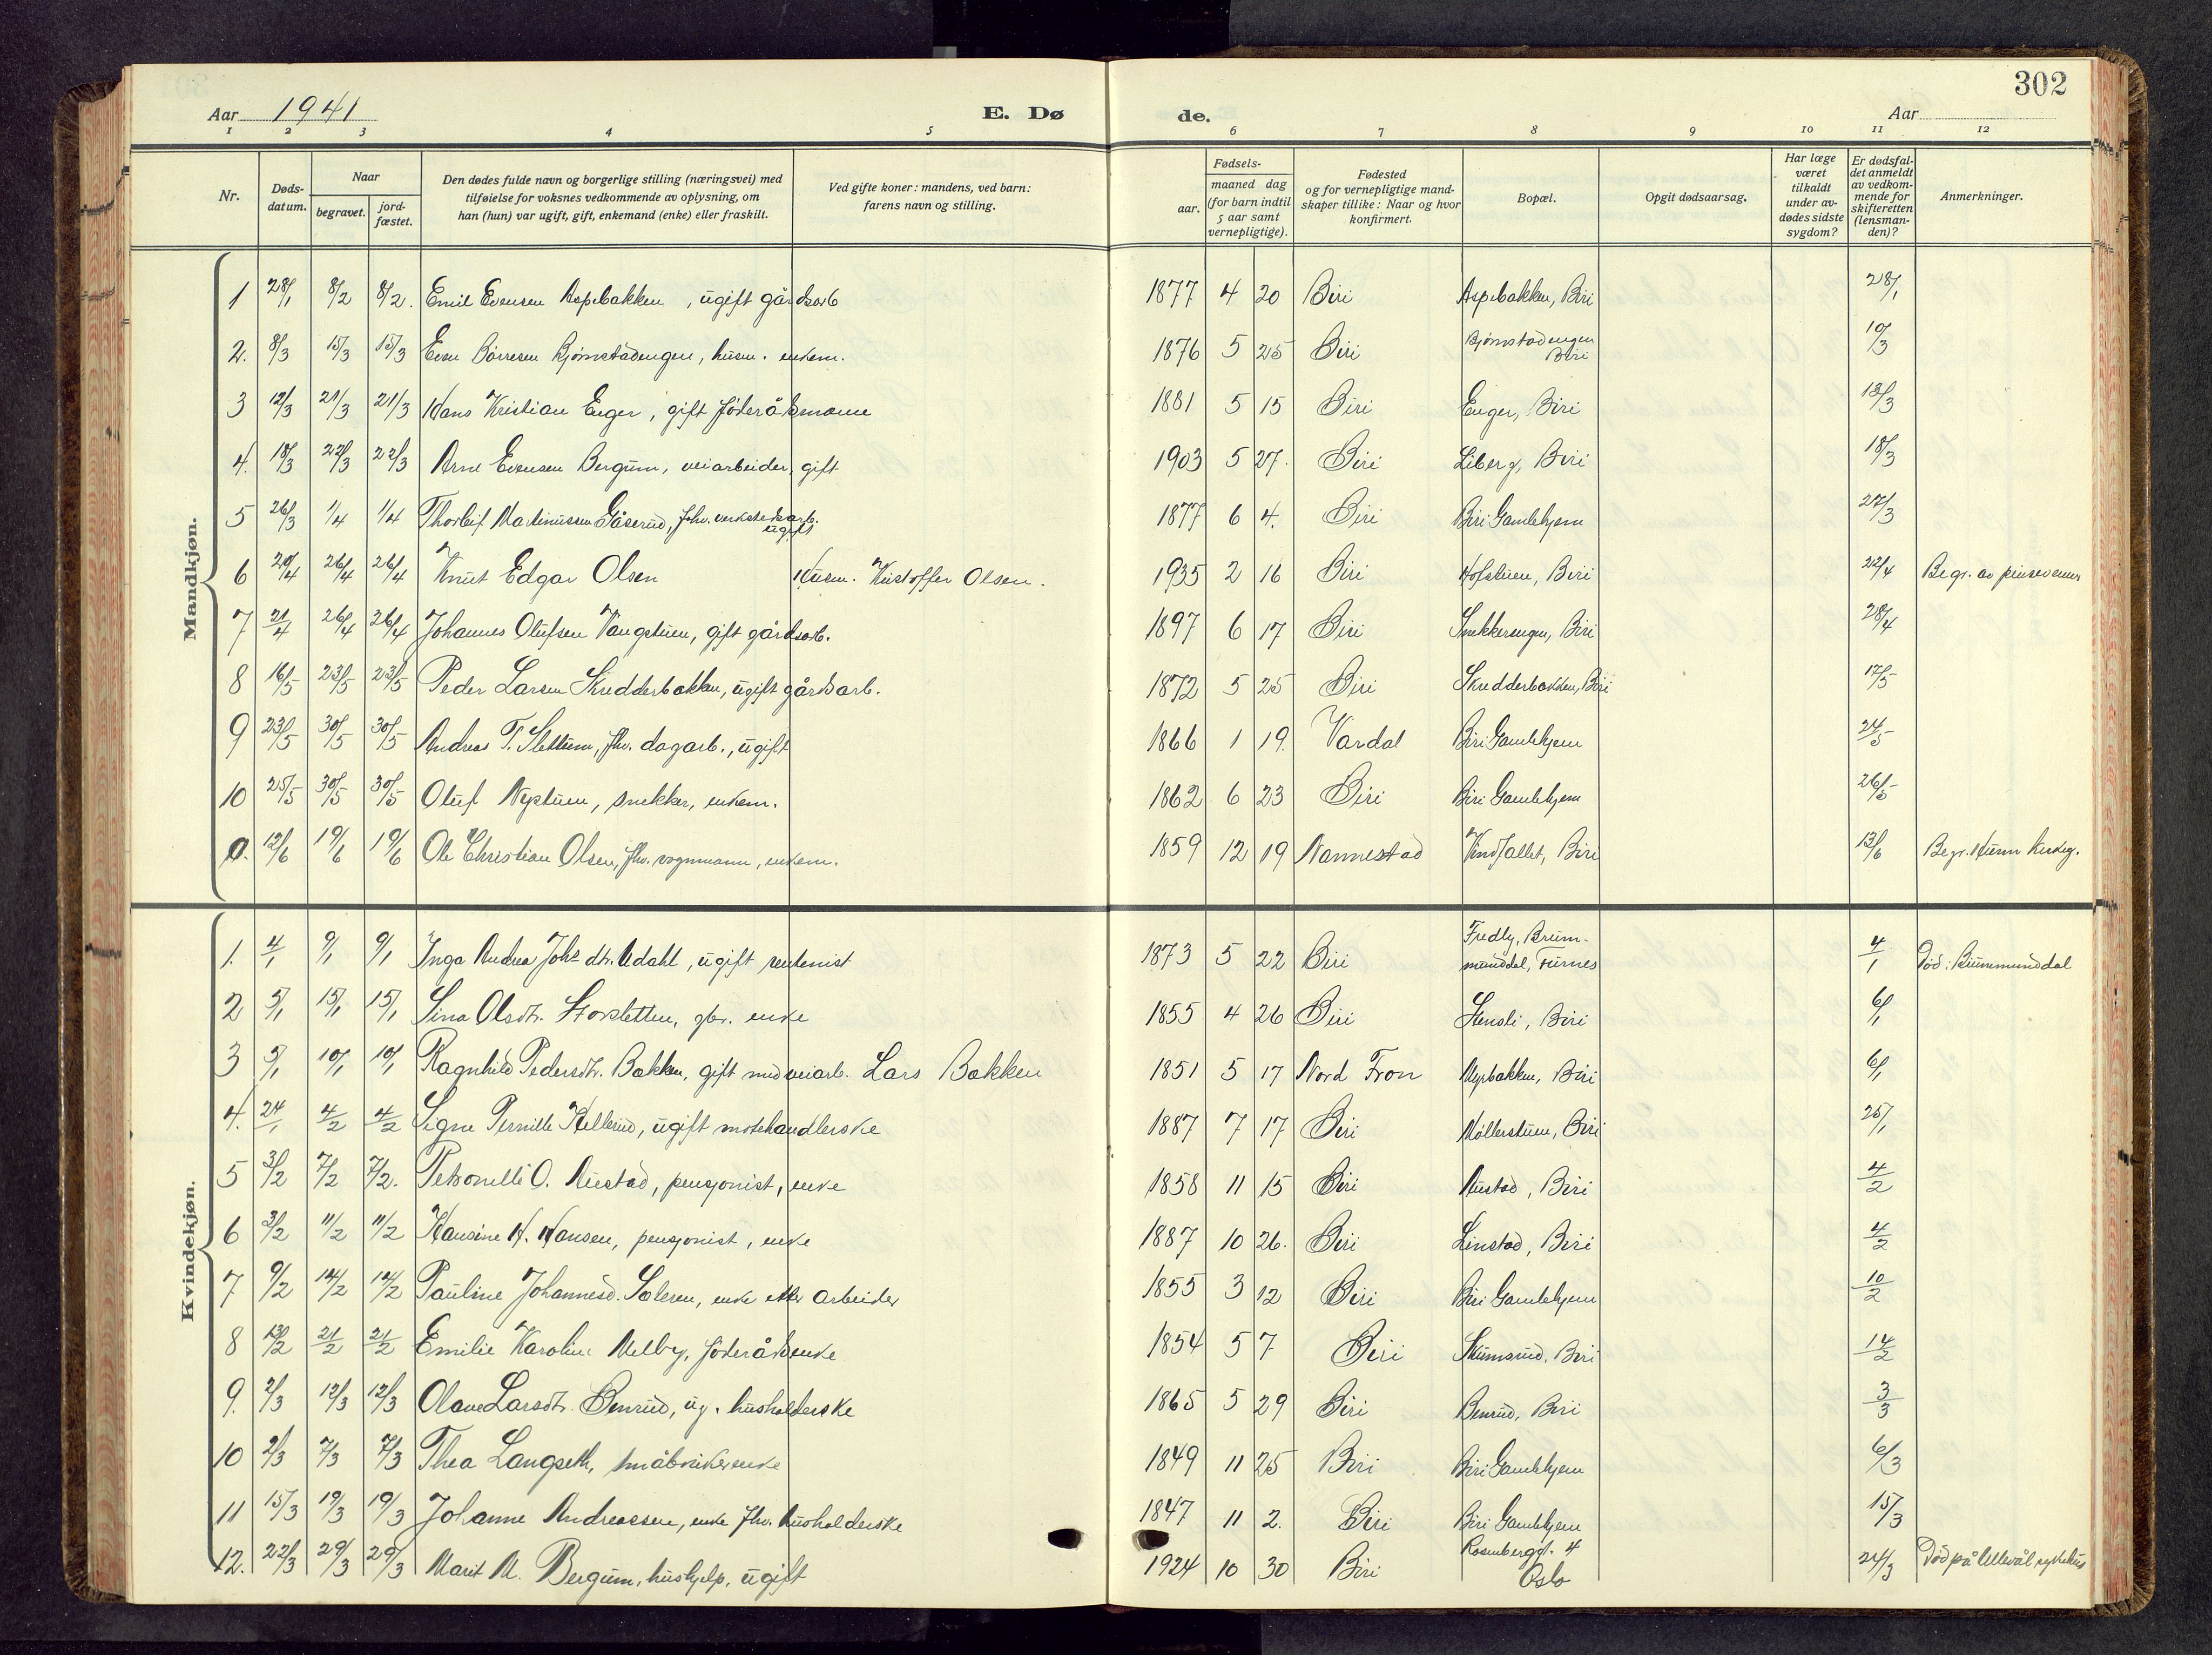 302
Aar 1941
E. Dø
de.
Aar
1 2 3 4 5 6 7 8 9 10 11 12
Nr.
Døds-
datum.
Naar
begravet.
jord-
fæstet.
Den dødes fulde navn og borgerlige stilling (næringsvei) med
tilføielse for voksnes vedkommende av oplysning, om
han (hun) var ugift, gift, enkemand (enke) eller fraskilt.
Ved gifte koner: mandens, ved barn:
farens navn og stilling.
Fødsels-
aar.
maaned dag
(for barn indtil
5 aar samt
vernepligtige).
Fødested
og for vernepligtige mand-
skaper tillike: Naar og hvor
konfirmert.
Bopæl.
Opgit dødsaarsag.
Har læge
været
tilkaldt
under av-
dødes sidste
sygdom?
Er dødsfal-
det anmeldt
av vedkom-
mende for
skifteretten
(lensman-
den)?
Anmerkninger.
Mandkjøn.
1 28/1 8/2 8/2. Emil Evensen Aspebakken, ugift gårdsarb 1877 4 20 Biri Aspebakken, Biri 28/1
2. 8/3 15/3 15/3 Even Børresen Bjørnstadengen, husm. enkem. 1876 5 25 Biri Bjørnstadengen Biri 10/3
3 12/3 21/3 21/3 Hans Kristian Enger, gift føderådsmann 1881 5 15 Biri Enger, Biri 13/3
4. 18/3 22/3 22/3 Arne Evensen Bergum, veiarbeider, gift 1903 5 27. Biri Liberg, Biri 18/3
5 26/3 1/4 1/4 Thorleif Martinussen Gåserud, fhv. verkstedsarb. ugift 1877 6 4. Biri Biri Gamlehjem 27/3
6 20/4 26/4 26/4 Knut Edgar Olsen Husm. Kristoffer Olsen. 1935 2 16 Biri Hofstuen, Biri 22/4 Begr. av pinsevenner
7 21/4 26/4 26/4 Johannes Olufsen Vangstuen, gift gårdsarb. 1897 6 17 Biri Snekkerengen, Biri 28/4
8 16/5 23/5 23/5 Peder Larsen Skredderbakken, ugift gårdsarb. 1872 5 25 Biri Skredderbakken, Biri 17/5
9 23/5 30/5 30/5 Andreas T. Slettum, fhv. dagarb., ugift 1866 1 19. Vardal Biri Gamlehjem 24/5
10 25/5 30/5 30/5 Oluf Nystuen, snekker, enkem. 1862 6 23 Biri Biri Gamlehjem 26/5
0. 12/6 19/6 19/6 Ole Christian Olsen, fhv. vognmann, enkem. 1859 12 19 Nannestad Vindfallet, Biri 13/6 Begr. Hunn kirkeg.
Kvindekjøn.
1. 4/1 9/1 9/1 Inga Andrea Johs dtr. Udahl, ugift rentenist 1873 5 22 Biri Fredly, Brum-
munddal, Furnes 4/1 Død: Brummunddal
2 5/1 15/1 15/1 Sina Olsdtr. Storsletten, gbr. enke 1855 4 26 Biri Stensli, Biri 6/1
3 5/1 10/1 10/1 Ragnhild Pedersdtr. Bakken, gift med veiarb. Lars Bakken 1851 5 17 Nord Fron Myrbakken, Biri 6/1
4. 24/1 4/2 4/2 Signe Pernille Kellerud, ugift motehandlerske 1887 7 17 Biri Møllerstuen, Biri 25/1
5 3/2 7/2 7/2. Petronelle O. Austad, pensjonist, enke 1858 11 15 Biri Austad, Biri 4/2
6 3/2 11/2 11/2 Hansine H. Hansen, pensjonist, enke 1887 10 26. Biri Linstad, Biri 4/2
7 9/2 14/2 14/2 Pauline Johannesd. Sæleren, enke etter arbeider 1855 3 12 Biri Biri Gamlehjem 10/2
8 13/2 21/2 21/2 Emilie Karoline Melby, føderådsenke 1854 5 7 Biri Skumsrud, Biri 14/2
9. 2/3 12/3 12/3 Olave Larsdtr. Benrud, ug. husholderske 1865 5 29 Biri Benrud, Biri 3/3
10 2/3 7/3 7/3 Thea Langseth, småbrukerenke 1849 11 25 Biri Biri Gamlehjem 6/3
11 15/3 19/3 19/3 Johanne Andreassen, enke fhv. husholderske 1847 11 2. Biri Biri Gamlehjem 15/3
12. 22/3 29/3 29/3 Marit M. Bergum, hushjelp, ugift 1924 10 30 Biri Rosenberggt. 4
Oslo 24/3 Død på Ullevål sykehus